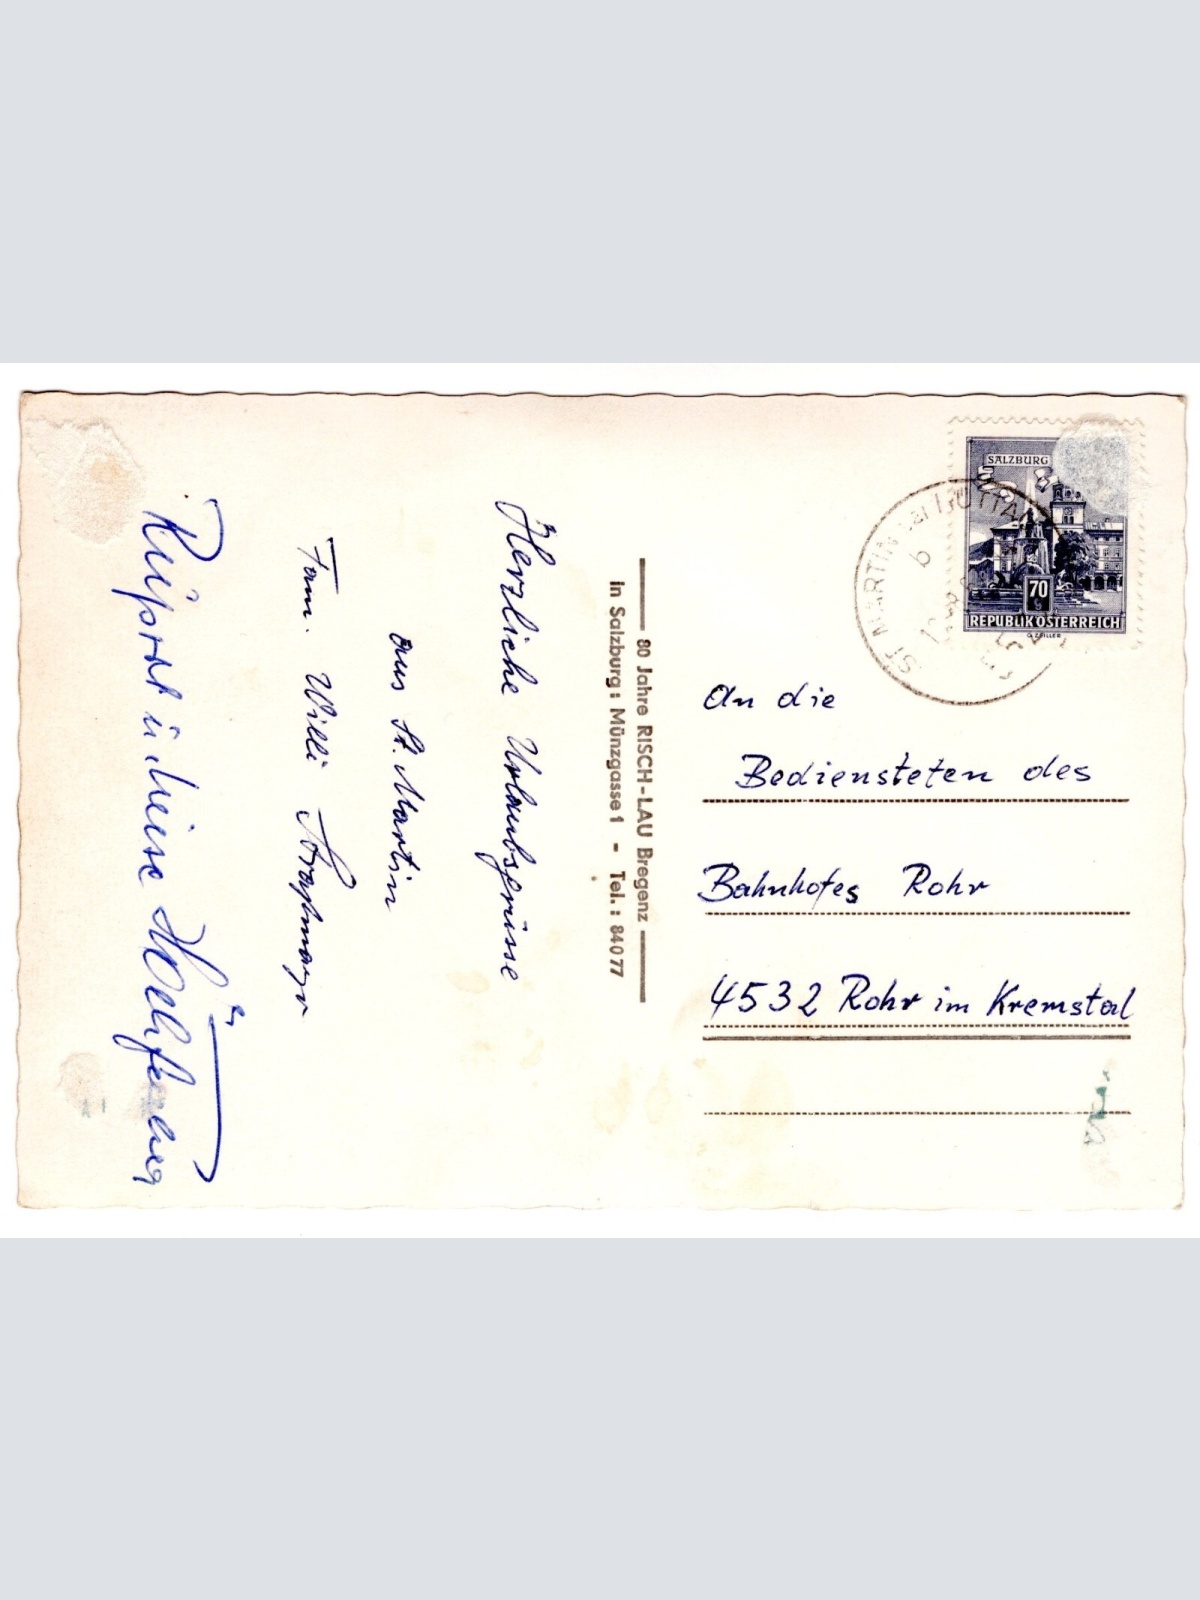 Herzliche Urlaubsgrüsse
aus St. Martin
Fam. Willi
80 Jahre RISCH-LAU Bregenz
in Salzburg: Münzgasse 1 - Tel.: 84077
SALZBURG
70
REPUBLIK ÖSTERREICH
ST MARTIN bei
An die
Bediensteten des
Bahnhofes Rohr
4532 Rohr im Kremstal